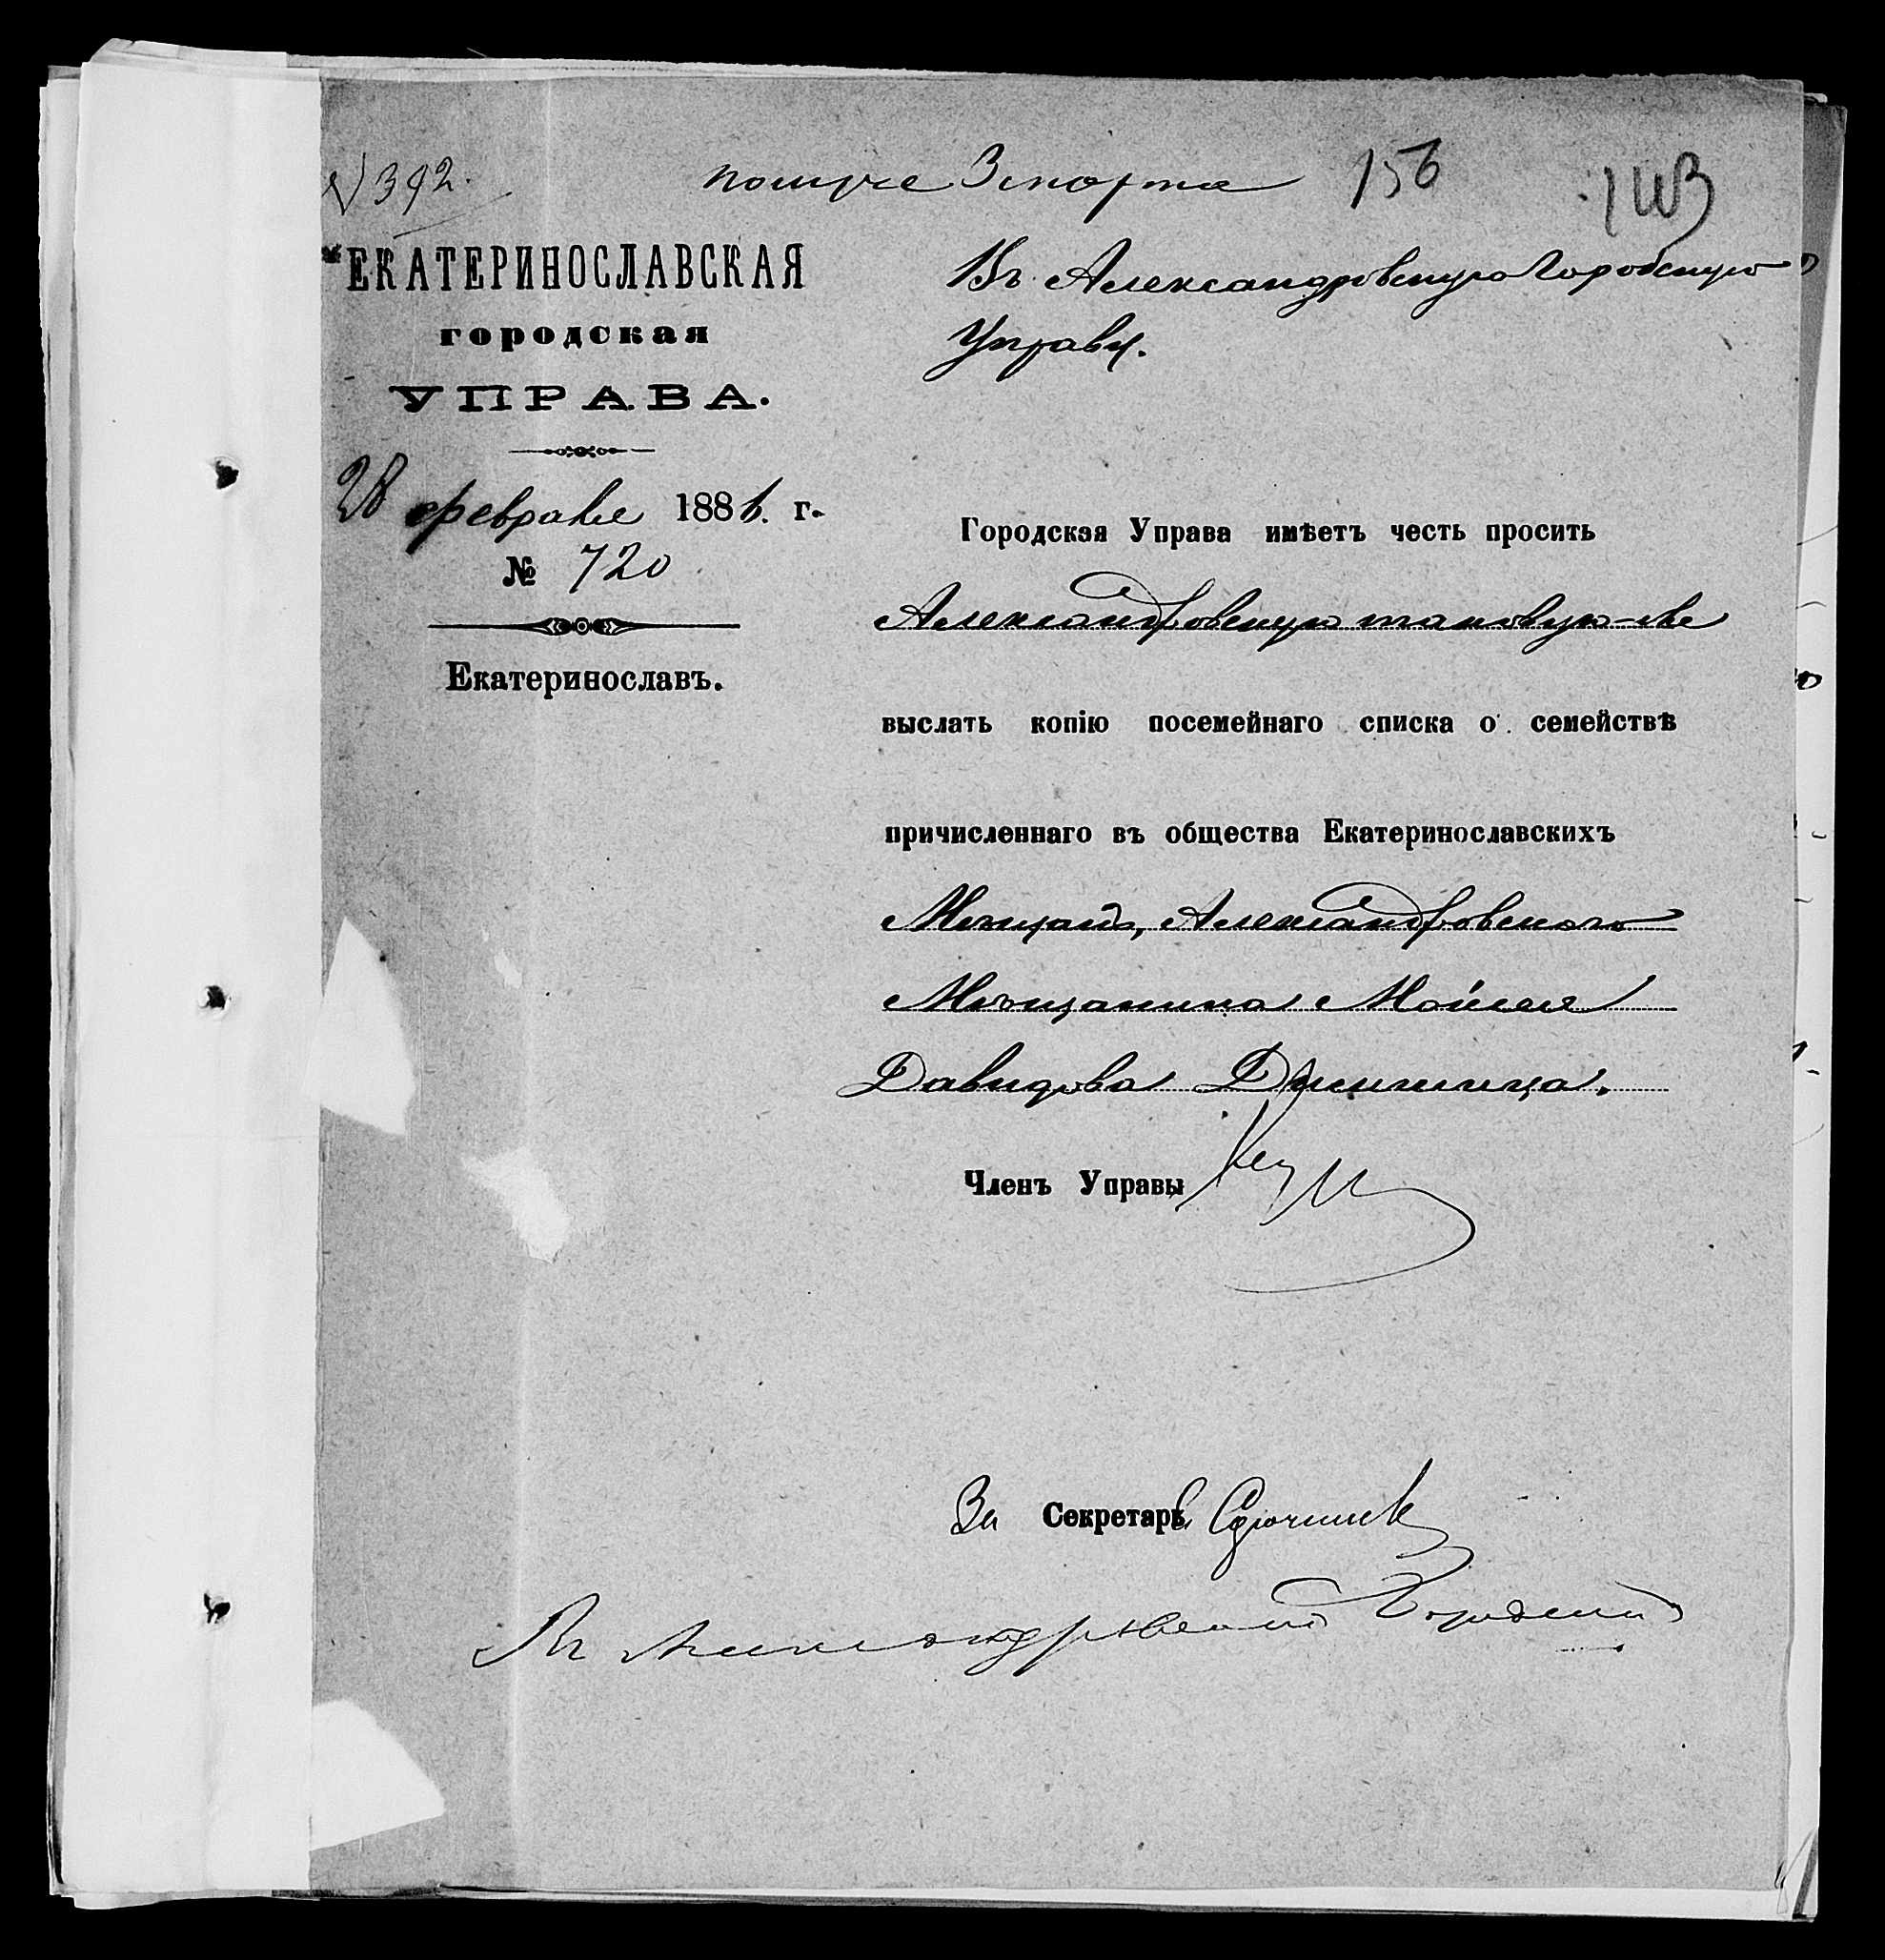 № 392.
получе 3 марта 156
143
ЕКАТЕРИНОСЛАВСКАЯ
городская
УПРАВА.
28 февраля 1881. г.
№ 720
Екатеринославъ.
Въ Александровскую Городскую
Управу.
Городская Управа имѣетъ честь просить
Александровскую таковую-же
выслать копію посемейнаго списка о семействѣ
причисленнаго въ общества Екатеринославскихъ
Мѣщанъ, Александровскаго
Мѣщанина Мойсея
Давидова
Членъ Управы
За Секретаря